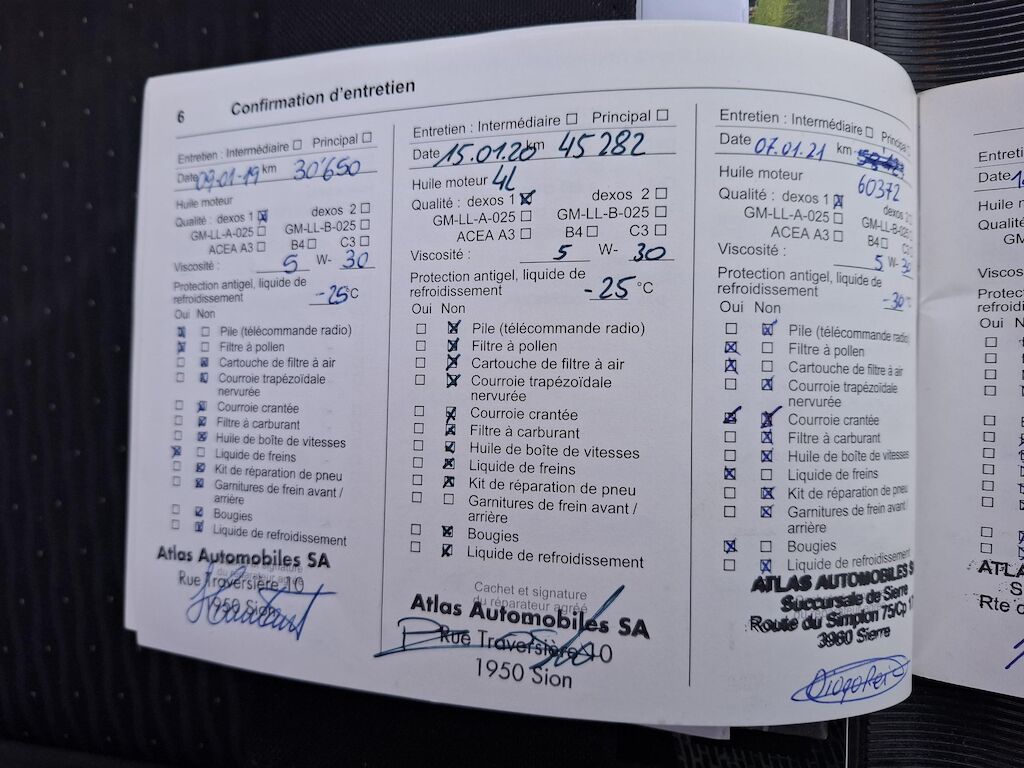 6 Confirmation d'entretien
Entretien : Intermédiaire Principal
Date 09-01-19 km 30'650
Huile moteur
Qualité : dexos 1 dexos 2
GM-LL-A-025 GM-LL-B-025
ACEA A3 B4 C3
Viscosité : 5 W- 30
Protection antigel, liquide de
refroidissement -25°C
Oui Non
Pile (télécommande radio)
Filtre à pollen
Cartouche de filtre à air
Courroie trapézoïdale
nervurée
Courroie crantée
Filtre à carburant
Huile de boîte de vitesses
Liquide de freins
Kit de réparation de pneu
Garnitures de frein avant /
arrière
Bougies
Liquide de refroidissement
Atlas Automobiles SA
Rue Traversière 10
1950 Sion
Entretien : Intermédiaire Principal
Date 15.01.20 km 45282
Huile moteur 4L
Qualité : dexos 1 dexos 2
GM-LL-A-025 GM-LL-B-025
ACEA A3 B4 C3
Viscosité : 5 W- 30
Protection antigel, liquide de
refroidissement -25 °C
Oui Non
Pile (télécommande radio)
Filtre à pollen
Cartouche de filtre à air
Courroie trapézoïdale
nervurée
Courroie crantée
Filtre à carburant
Huile de boîte de vitesses
Liquide de freins
Kit de réparation de pneu
Garnitures de frein avant /
arrière
Bougies
Liquide de refroidissement
Cachet et signature
du réparateur agréé
Atlas Automobiles SA
Rue Traversière 10
1950 Sion
Entretien : Intermédiaire Principal
Date 07.01.21 km
Huile moteur 60372
Qualité : dexos 1 dexos 2
GM-LL-A-025 GM-LL-B-025
ACEA A3 B4 C3
Viscosité : 5 W- 30
Protection antigel, liquide de
refroidissement -30°C
Oui Non
Pile (télécommande radio)
Filtre à pollen
Cartouche de filtre à air
Courroie trapézoïdale
nervurée
Courroie crantée
Filtre à carburant
Huile de boîte de vitesses
Liquide de freins
Kit de réparation de pneu
Garnitures de frein avant /
arrière
Bougies
Liquide de refroidissement
ATLAS AUTOMOBILES S
Succursale de Sierre
Route du Simplon 75/Cp 17
3960 Sierre
Entreti
Date
Huile m
Qualité
GM
Viscos
Protec
refroidi
Oui N
ATLA
S
Rte d